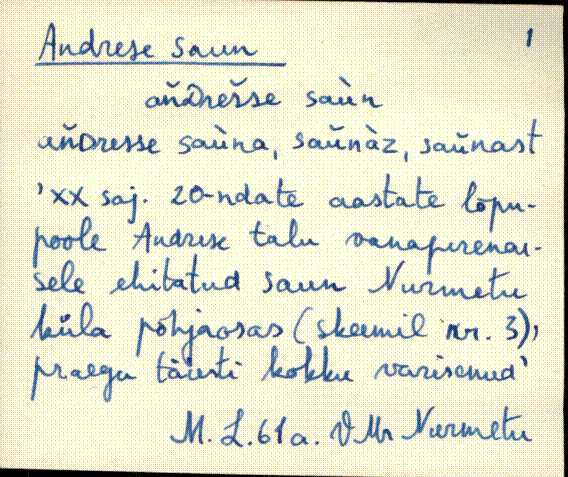 Andrese saun 1
aňDrešse saùn
aňDresse saùna, saŭnàz, saŭnast
'XX saj. 20-ndate aastate lõpu-
poole Andrese talu vanaperenai-
sele ehitatud saun Nurmetu
küla põhjaosas (skeemil nr. 3),
praegu täiesti kokku varisenud'
M. L. 61 a. VMr Nurmetu